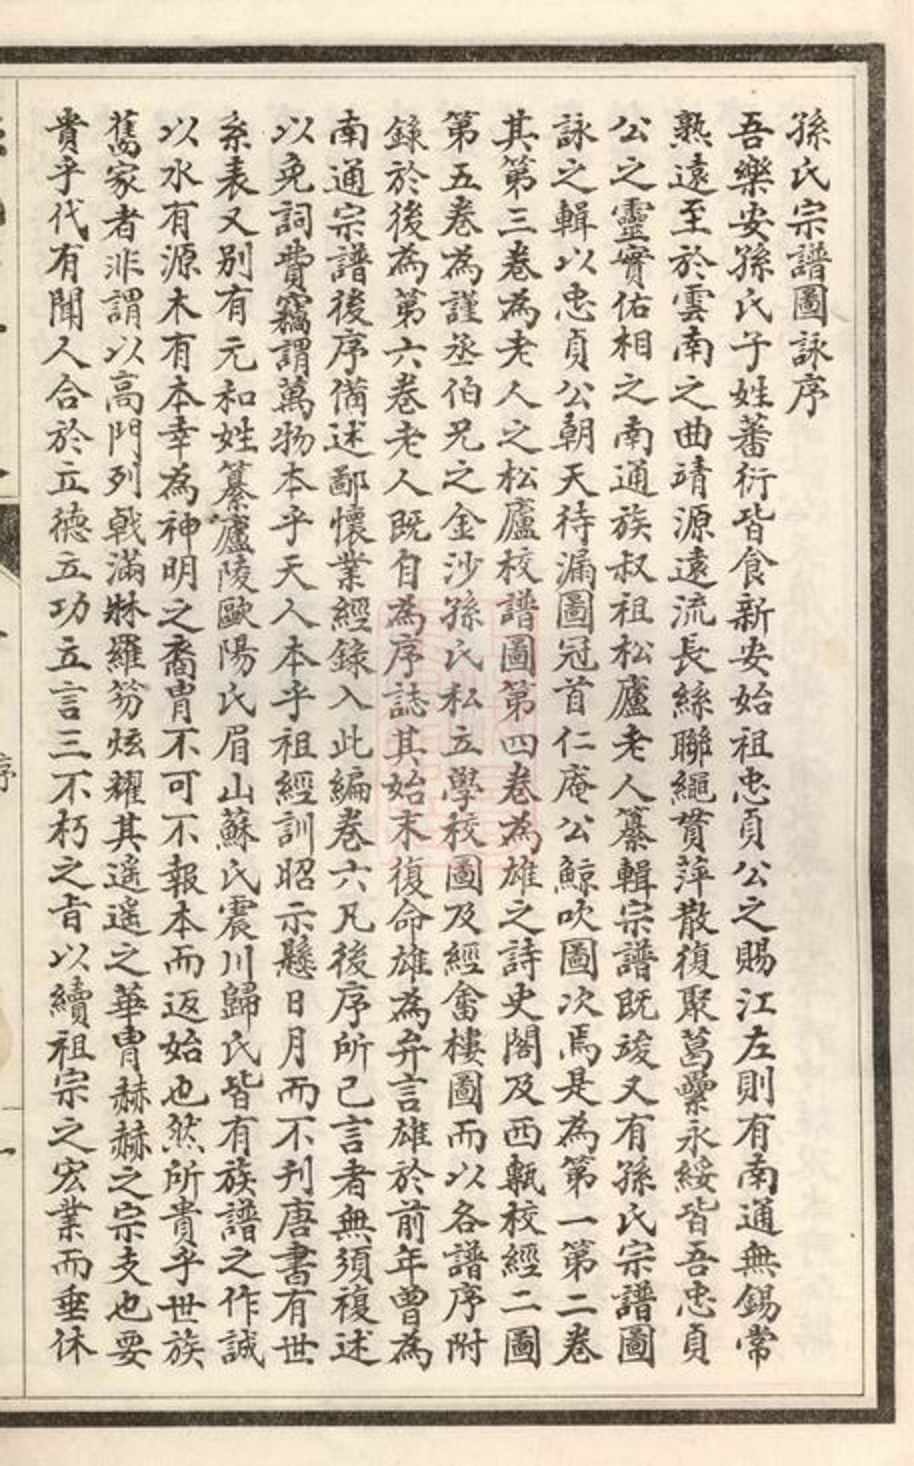 孫氏宗譜圖詠序
吾樂安孫氏子姓蕃衍皆食新安始祖忠貞公之賜江左則有南通無錫常
熟遠至於雲南之曲靖源遠流長絲聯繩貫萍散復聚葛纍永綏皆吾忠貞
公之靈實佑相之南通族叔祖松廬老人纂輯宗譜既竣又有孫氏宗譜圖
詠之輯以忠貞公朝天待漏圖冠首仁庵公鯨吹圖次焉是為第一第二卷
其第三卷為老人之松廬校譜圖第四卷為雄之詩史閣及西甎校經二圖
第五卷為謹丞伯兄之金沙孫氏私立學校圖及經畬樓圖而以各譜序附
錄於後為第六卷老人既自為序誌其始末復命雄為弁言雄於前年曾為
南通宗譜後序備述鄙懷業經錄入此編卷六凡後序所已言者無須複述
以免詞費竊謂萬物本乎天人本乎祖經訓昭示懸日月而不刋唐書有世
系表又别有元和姓纂廬陵歐陽氏眉山蘇氏震川歸氏皆有族譜之作誠
以水有源木有本幸為神明之裔胄不可不報本而返始也然所貴乎世族
舊家者非謂以高門列戟滿牀羅笏炫耀其遥遥之華胄赫赫之宗支也要
貴乎代有聞人合於立德立功立言三不朽之旨以續祖宗之宏業而垂休
序